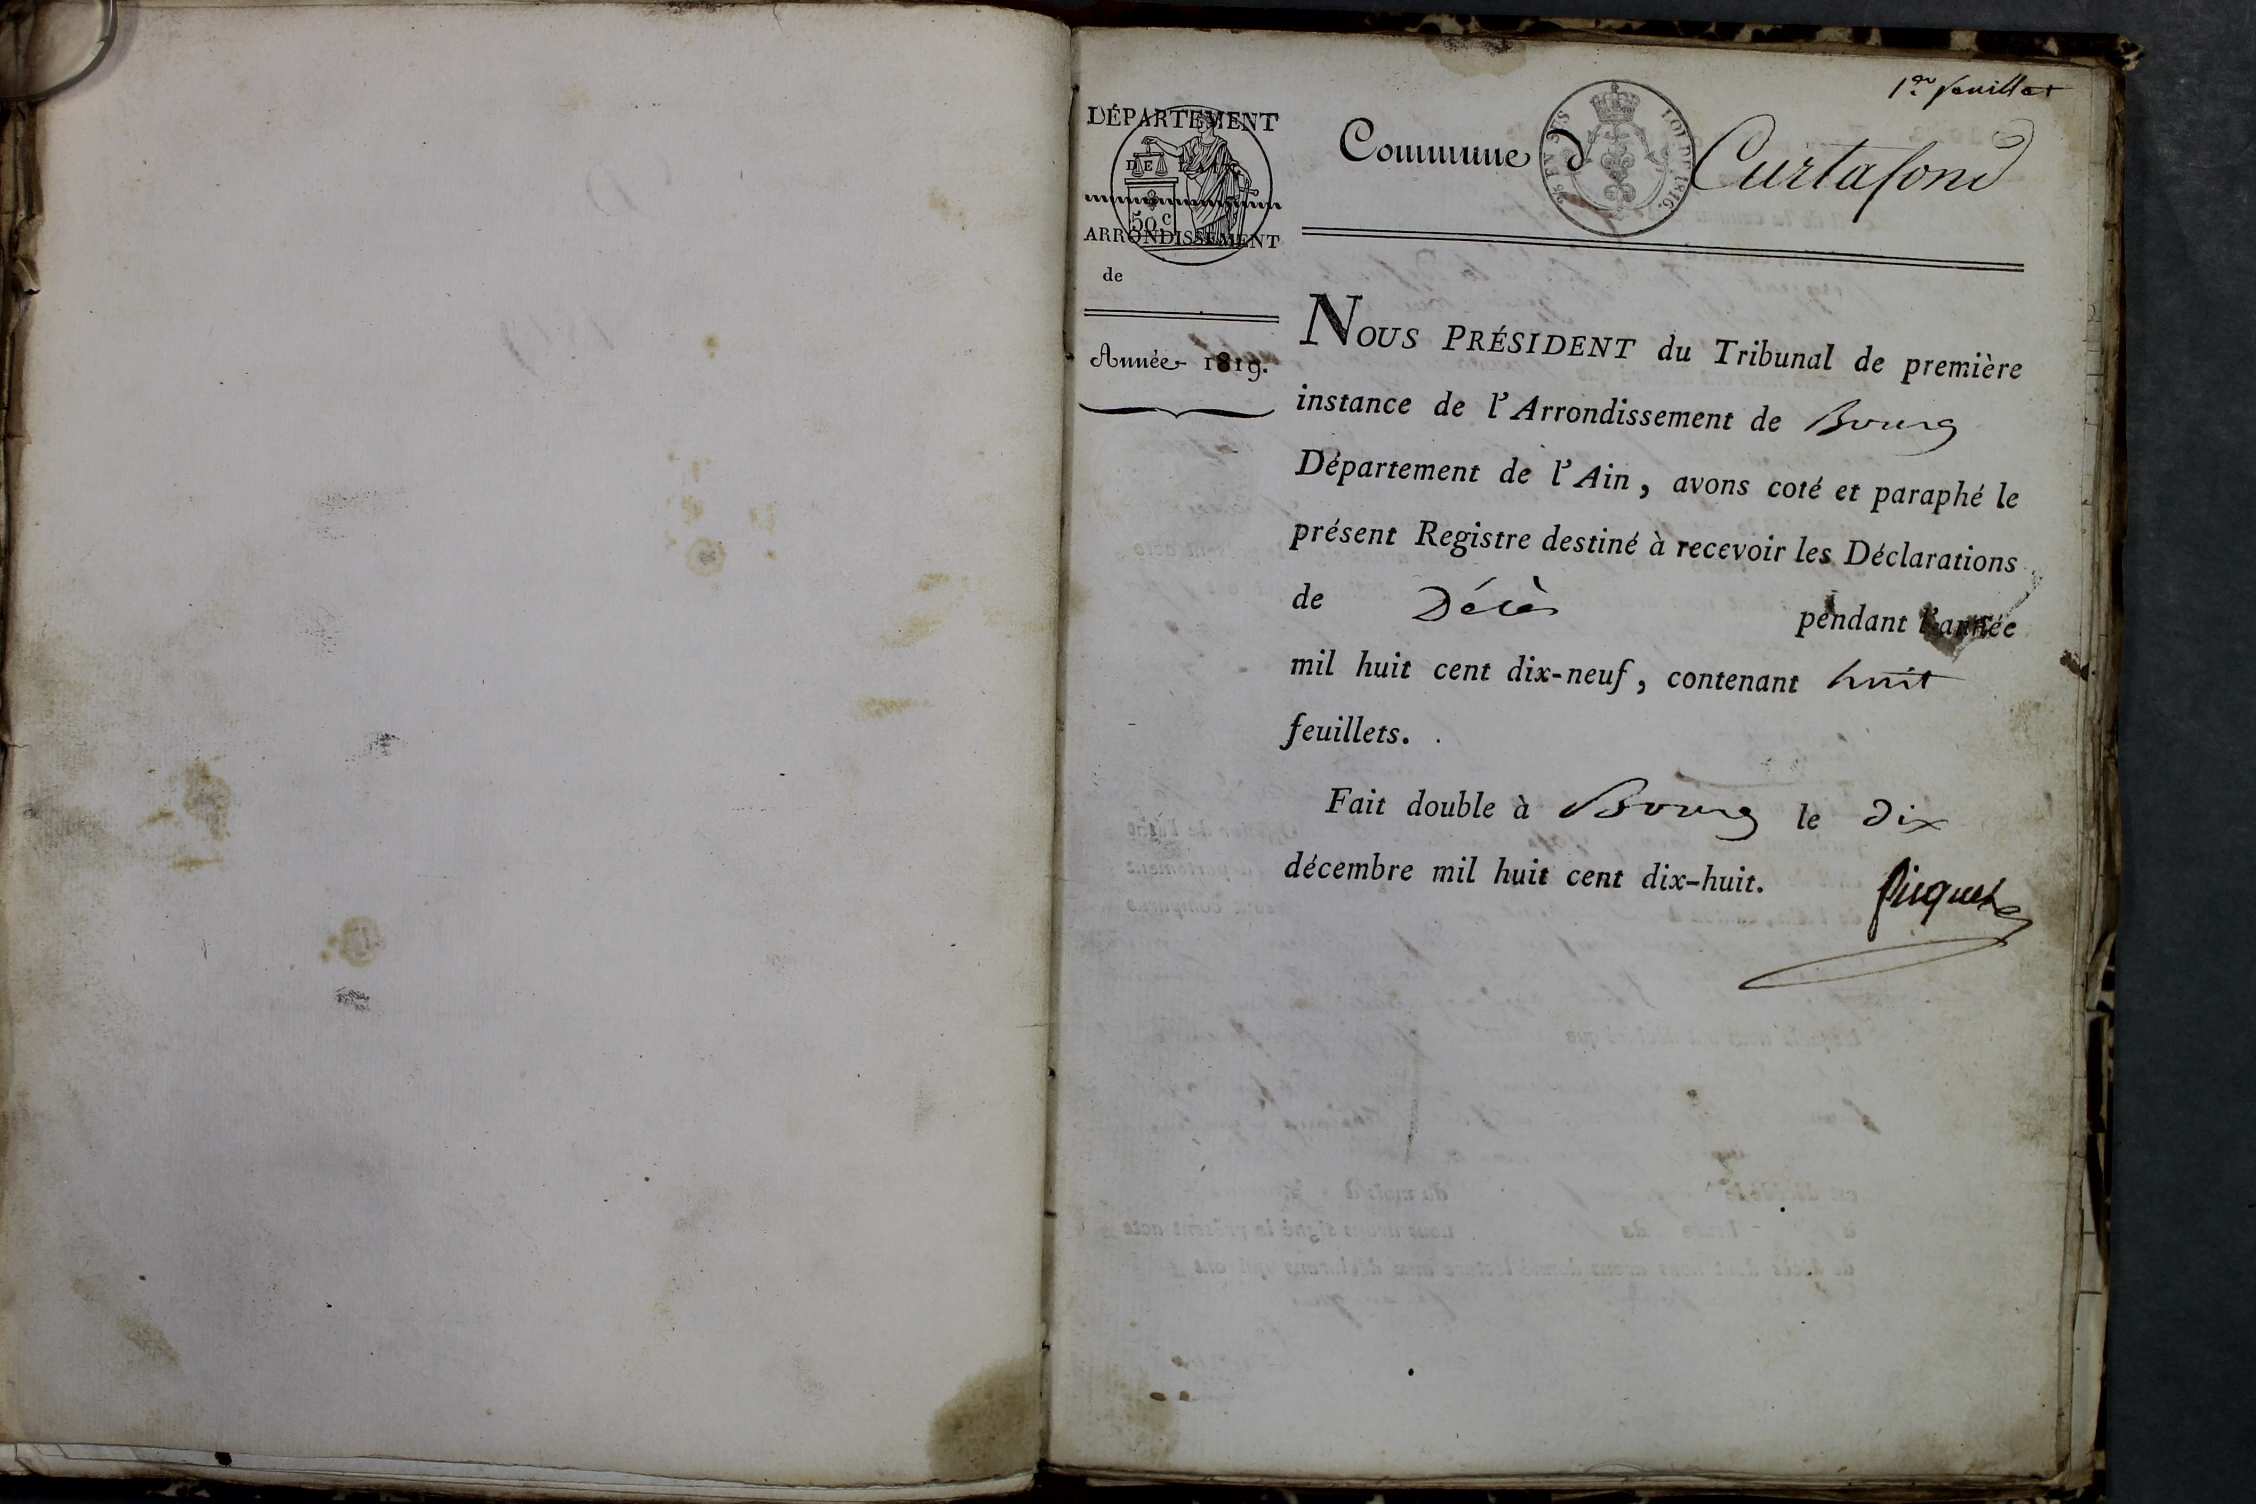 1er feuillet
DÉPARTEMENT
DE L'AIN
50 c
ARRONDISSEMENT
de
Année 1819.
Commune d
25 EN SUS
LOI DE 1816.
Curtafond
NOUS PRÉSIDENT du Tribunal de première
instance de l'Arrondissement de Bourg
Département de l'Ain, avons coté et paraphé le
présent Registre destiné à recevoir les Déclarations
de Décès pendant l'année
mil huit cent dix-neuf, contenant huit
feuillets.
Fait double à Bourg le dix
décembre mil huit cent dix-huit.
Picquet